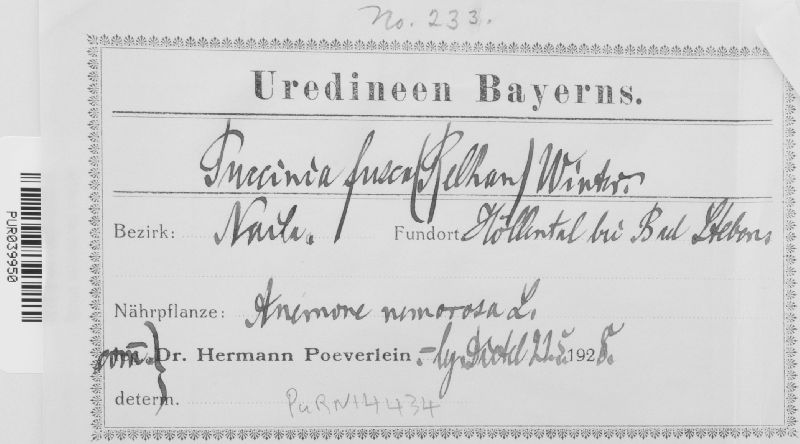 No. 233.
Uredineen Bayerns.
Puccinia fusca (Relhan) Winter.
Bezirk: Naila. Fundort Höllental bei Bad Steben.
Nährpflanze: Anemone nemorosa L.
com. Dr. Hermann Poeverlein. – lg. Dietel 22.5.1928.
determ.
PURN14434
PUR039950